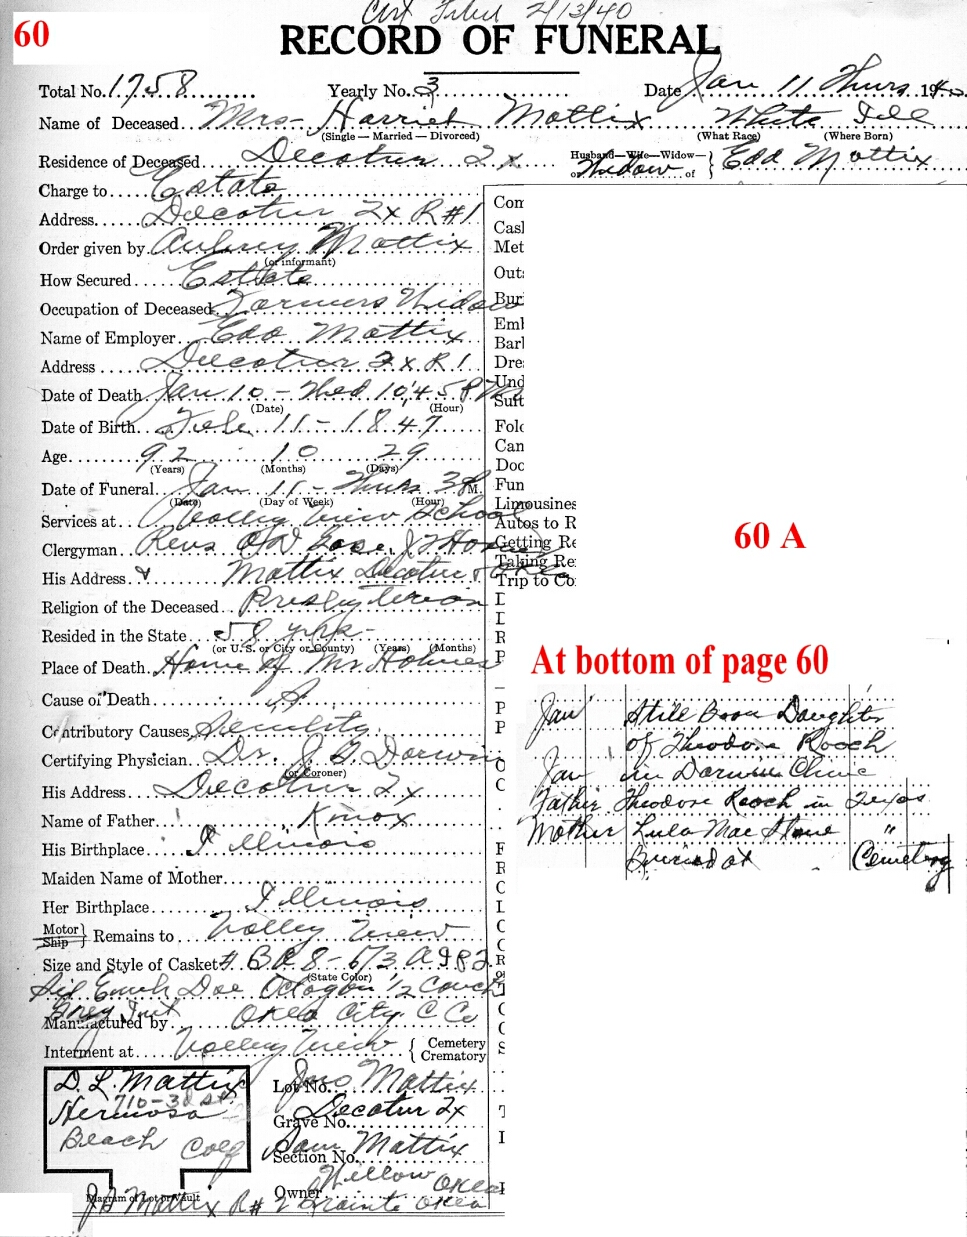 Cert Filed 2/13/40
60
RECORD OF FUNERAL
Total No. 1758 Yearly No. 3 Date Jan 11 Thurs 1940
Name of Deceased Mrs- Harriet Mattix White Ill
(Single — Married — Divorced) (What Race) (Where Born)
Residence of Deceased Decatur Tx Husband—Wife—Widow— or Widow of } Edd Mattix
Charge to Estate
Address Decatur Tx R#1
Order given by Aubrey Mattix
(or informant)
How Secured Estate
Occupation of Deceased Farmers Widow
Name of Employer Edd Mattix
Address Decatur Tx R 1
Date of Death Jan 10 - Wed 10:45 PM
(Date) (Hour)
Date of Birth Feb 11 - 1847
Age 92 10 29
(Years) (Months) (Days)
Date of Funeral Jan 11 - Thurs 3 P M.
(Date) (Day of Week) (Hour)
Services at Valley View School
Clergyman Revs
His Address Mattix Decatur
Religion of the Deceased Presbyterian
Resided in the State 58 yrs
(or U. S. or City or County) (Years) (Months)
Place of Death Home of Mr Holmes
Cause of Death
Contributory Causes Senility
Certifying Physician Dr. J. G. Darwin
(or Coroner)
His Address Decatur Tx
Name of Father Knox
His Birthplace Illinois
Maiden Name of Mother
Her Birthplace Illinois
Motor Ship } Remains to Valley View
Size and Style of Casket #
(State Color)
Sil Emb Doe Octagon 1/2 Couch
Grey Int
Manufactured by Okla City C Co
Interment at Valley View { Cemetery Crematory
D. L. Mattix
710-3d St.
Hermosa
Beach Calf
Diagram of Lot or Vault
Lot No. Mattix
Decatur Tx
Grave No.
Sam Mattix
Section No.
Willow Okla
Owner
Mattix R# 2 Okla
Com
Casl
Met
Outs
Buri
Eml
Barl
Dre
Und
Suit
Fold
Can
Doc
Fun
Limousines
Autos to R
Getting Re
Taking Re
Trip to Co
60 A
At bottom of page 60
Jan Still Born Daughter
of Theodore Rooch
Jan in Darwin Clinic
Father Theodore Rooch in Texas
Mother Lula Mae Stone "
Buried at Cemetery